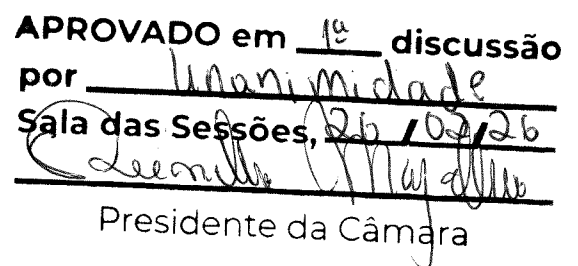 APROVADO em 1ª discussão
por Unanimidade
Sala das Sessões, 26 / 02 / 26
Presidente da Câmara